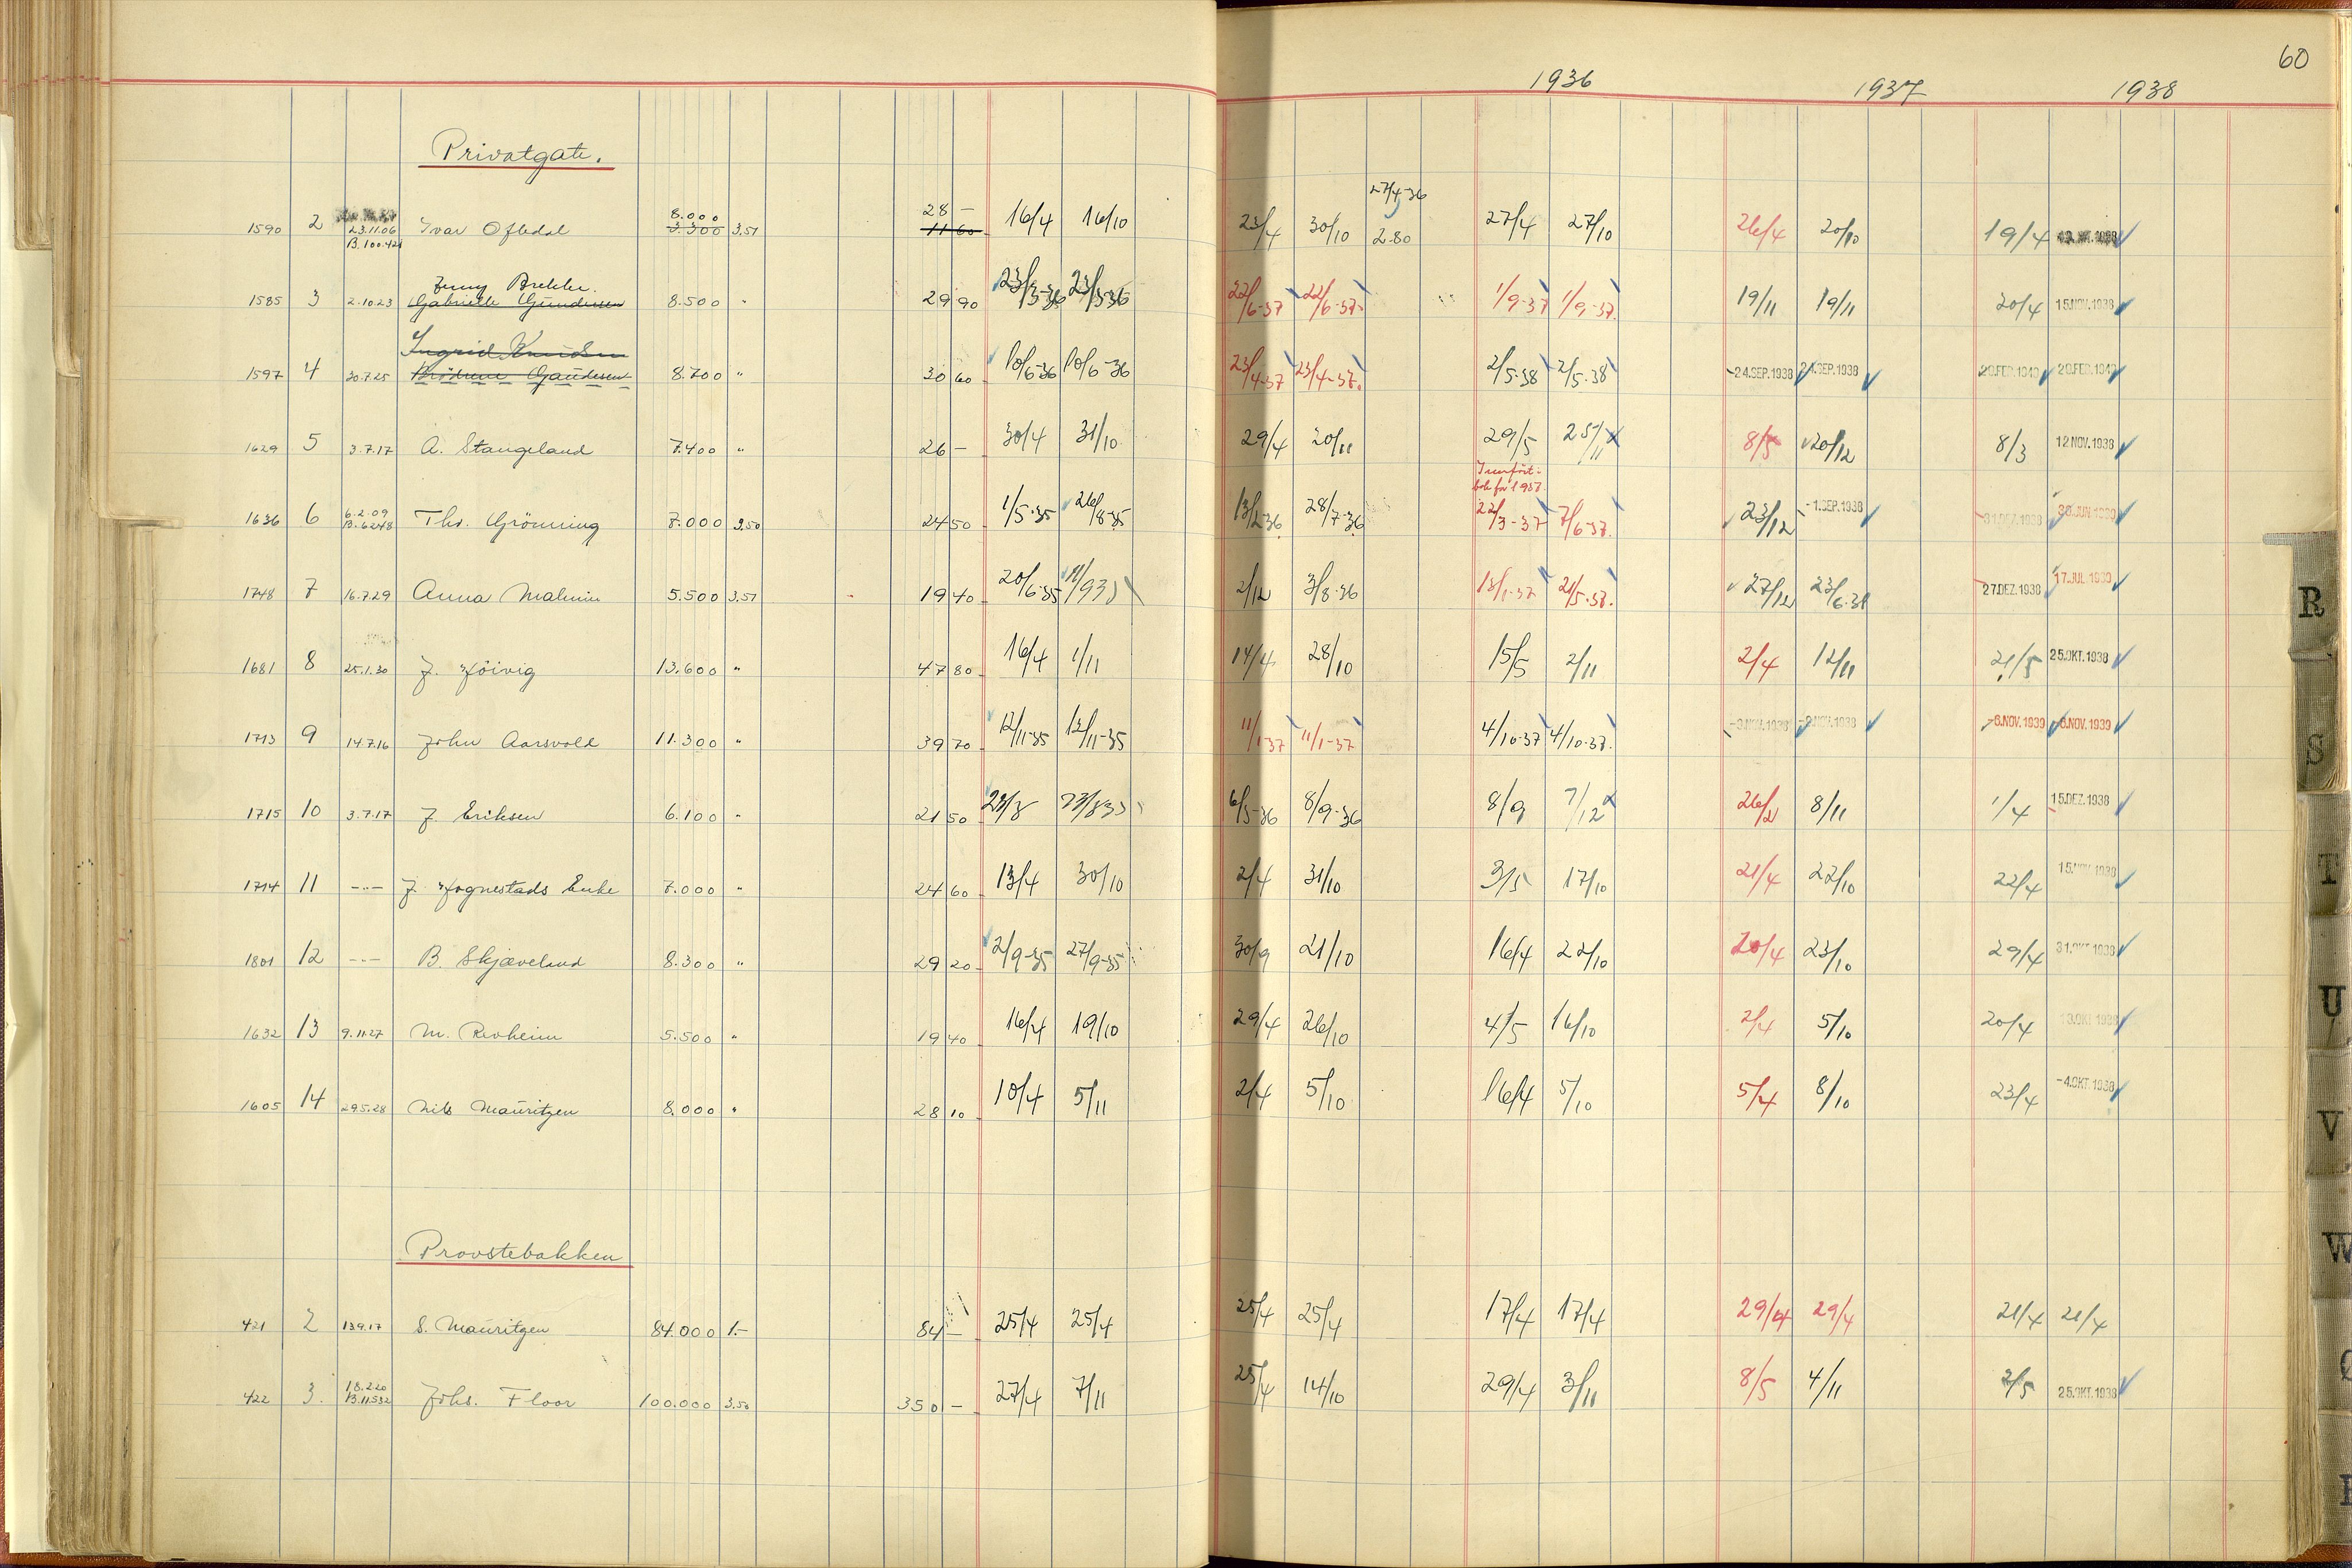 60
1936 1937 1938
Privatgate.
27/4-36
8.000 28 —
1590 2 23.11.06 Ivar Oftedal 3.300 3.51 11 60 16/4 16/10 23/4 30/10 2.80 27/4 27/10 26/4 20/10 19/4
B.100.421
Jenny Brekke.
1585 3 2.10.23 Gabrielle Gundersen 8.500 " 29 90 23/3-36 23/3-36 22/6-37 22/6-37 1/9-37 1/9-37 19/11 19/11 20/4 15.NOV.1938
Ingrid Knudsen
1597 4 30.7.25 Brödrene Gaudesen 8.700 " 30 60 10/6-36 10/6-36 23/4-37 23/4-37 2/5-38 2/5-38 24.SEP.1938 24.SEP.1938 20.FEB.1940 20.FEB.1940
1629 5 3.7.17 A. Stangeland 7.400 " 26 — 30/4 31/10 29/4 20/11 29/5 25/11 8/5 20/12 8/3 12 NOV.1938
bok for 1937
1636 6 6.2.09 Thv. Grönning 7.000 3.50 24 50 1/5-35 26/8-35 13/2-36 28/7-36 22/3-37 7/6-37 23/12 -1.SEP.1938 31.DEZ.1938 30.JUN.1939
B.6248
1748 7 16.7.29 Anna Malmin 5.500 3.51 19 40 20/6-35 11/935 2/12 3/8-36 13/1-37 21/5-37 27/12 23/6-38 27.DEZ.1938 17.JUL.1939
1681 8 25.1.30 J. Höivig 13.600 " 47 80 16/4 1/11 14/4 28/10 15/5 2/11 2/4 12/11 21/5 25.OKT.1938
1713 9 14.7.16 John Aarsvold 11.300 " 39 70 12/11-35 12/11-35 11/1-37 11/1-37 4/10-37 4/10-37 -9.NOV.1938 -9.NOV.1938 -6.NOV.1939 -6.NOV.1939
1715 10 3.7.17 J. Eriksen 6.100 " 21 50 6/5-36 8/9-36 8/9 7/12 26/2 8/11 1/4 15.DEZ.1938
1714 11 -"- J. Hognestads Enke 7.000 " 24 60 13/4 30/10 2/4 31/10 3/5 17/10 21/4 22/10 22/4 15.NOV.1938
1801 12 -"- B. Skjæveland 8.300 " 29 20 2/9-35 27/9-35 30/9 21/10 16/4 22/10 20/4 23/10 29/4 31.OKT.1938
1632 13 9.11.27 M. Revheim 5.500 " 19 40 16/4 19/10 29/4 26/10 4/5 16/10 2/4 5/10 20/4 13.OKT.1938
1605 14 29.5.28 Nils Mauritzen 8.000 " 28 10 10/4 5/11 2/4 5/10 16/4 5/10 5/4 8/10 23/4 -4.OKT.1938
Provstebakken
421 2 13.9.17 S. Mauritzen 84.000 1.- 84 — 25/4 25/4 25/4 25/4 17/4 17/4 29/4 29/4 21/4 21/4
422 3. 18.2.20 Johs. Floor 100.000 3.50 350 — 27/4 7/11 25/4 14/10 29/4 3/11 8/5 4/11 2/5 25.OKT.1938
B.11532
R
S
T
U
V
W